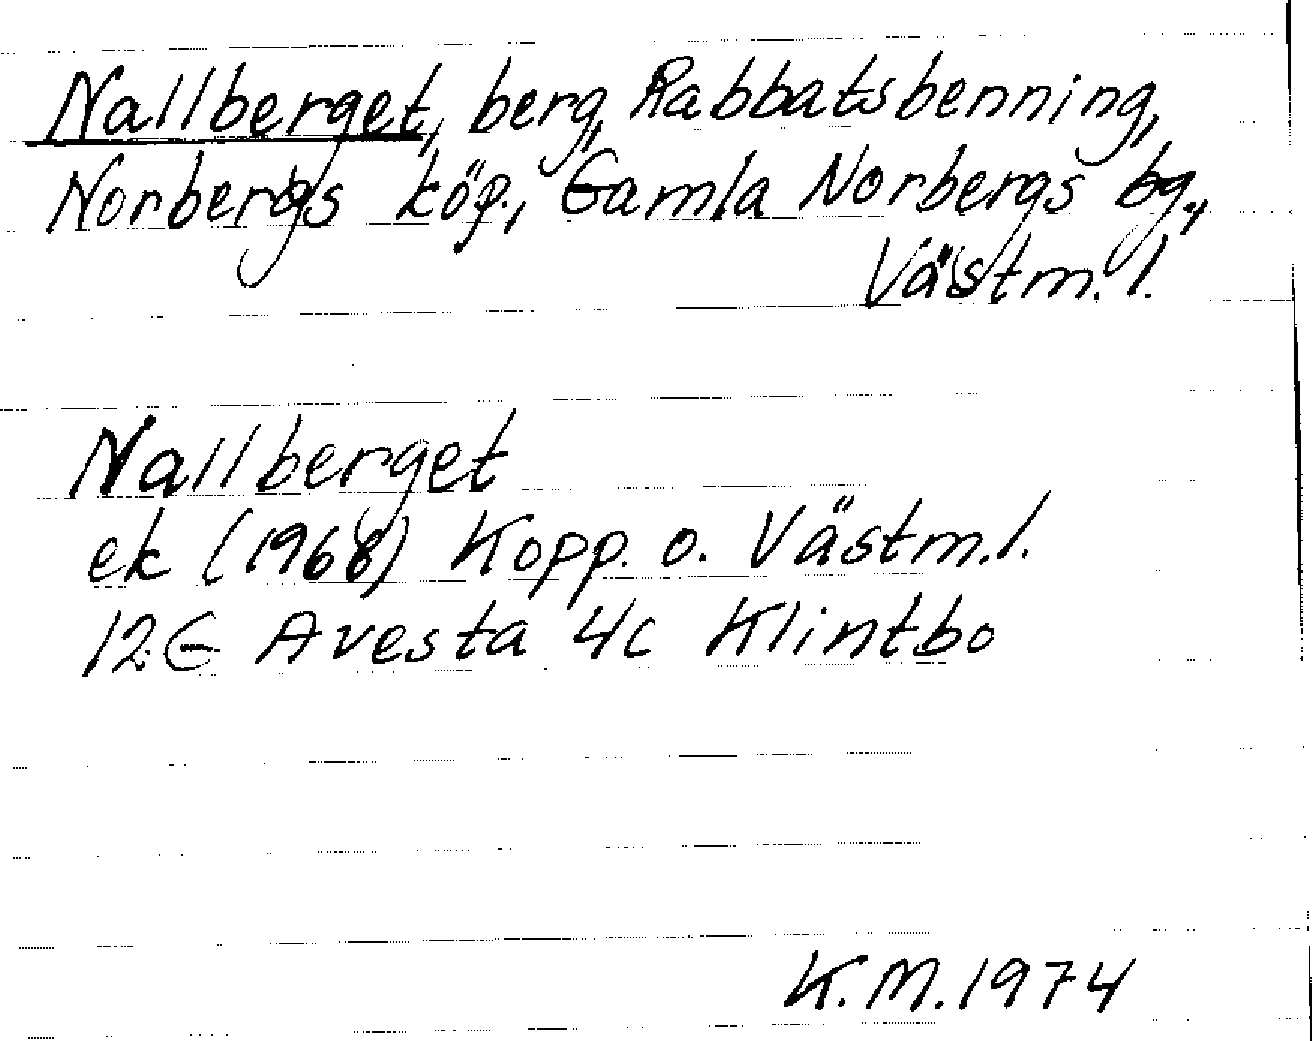 Nallberget, berg, Rabbatsbenning,
Norbergs köp., Gamla Norbergs bg.,
Västm. l.
Nallberget
ek (1968) Kopp. o. Västm.l.
12G Avesta 4c Klintbo
K.M.1974